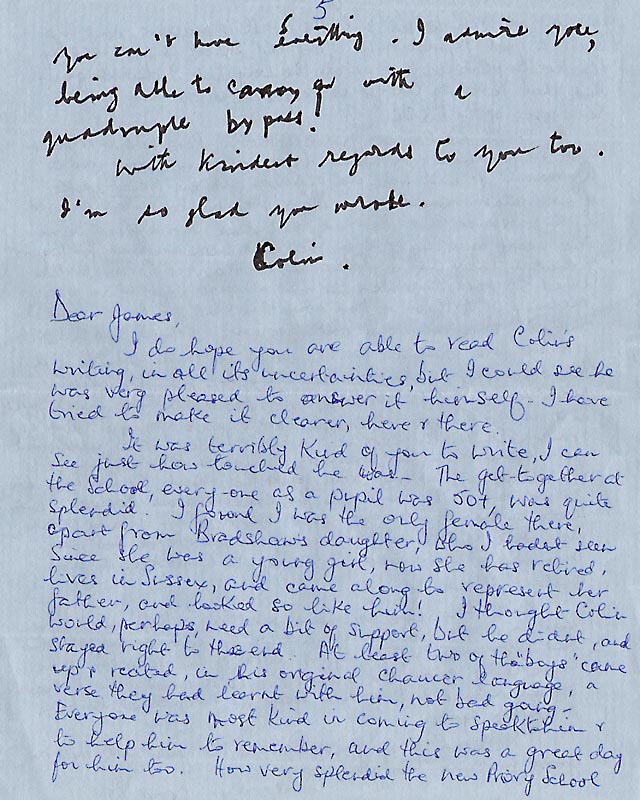 5
you can't have everything. I admire you,
being able to carry on with a
quadruple bypass!
With kindest regards to you too.
I'm so glad you wrote.
Colin.
Dear James,
I do hope you are able to read Colin's
writing, in all its uncertainties, but I could see he
was very pleased to answer it himself - I have
tried to make it clearer, here & there.
It was terribly kind of you to write, I can
see just how touched he was - The get-together at
the School, every-one as a pupil was 50+, was quite
splendid. I found I was the only female there,
apart from Bradshaw's daughter, who I hadnt seen
Since she was a young girl, now she has retired,
lives in Sussex, and came along to represent her
father, and looked so like him! I thought Colin
would, perhaps, need a bit of support, but he didnt, and
stayed right to the end. At least two of the "boys" came
up & recited, in his original Chaucer language, a
verse they had learnt with him, not bad going -
Everyone was most kind in coming to speak to him &
to help him to remember, and this was a great day
for him too. How very splendid the new Priory School